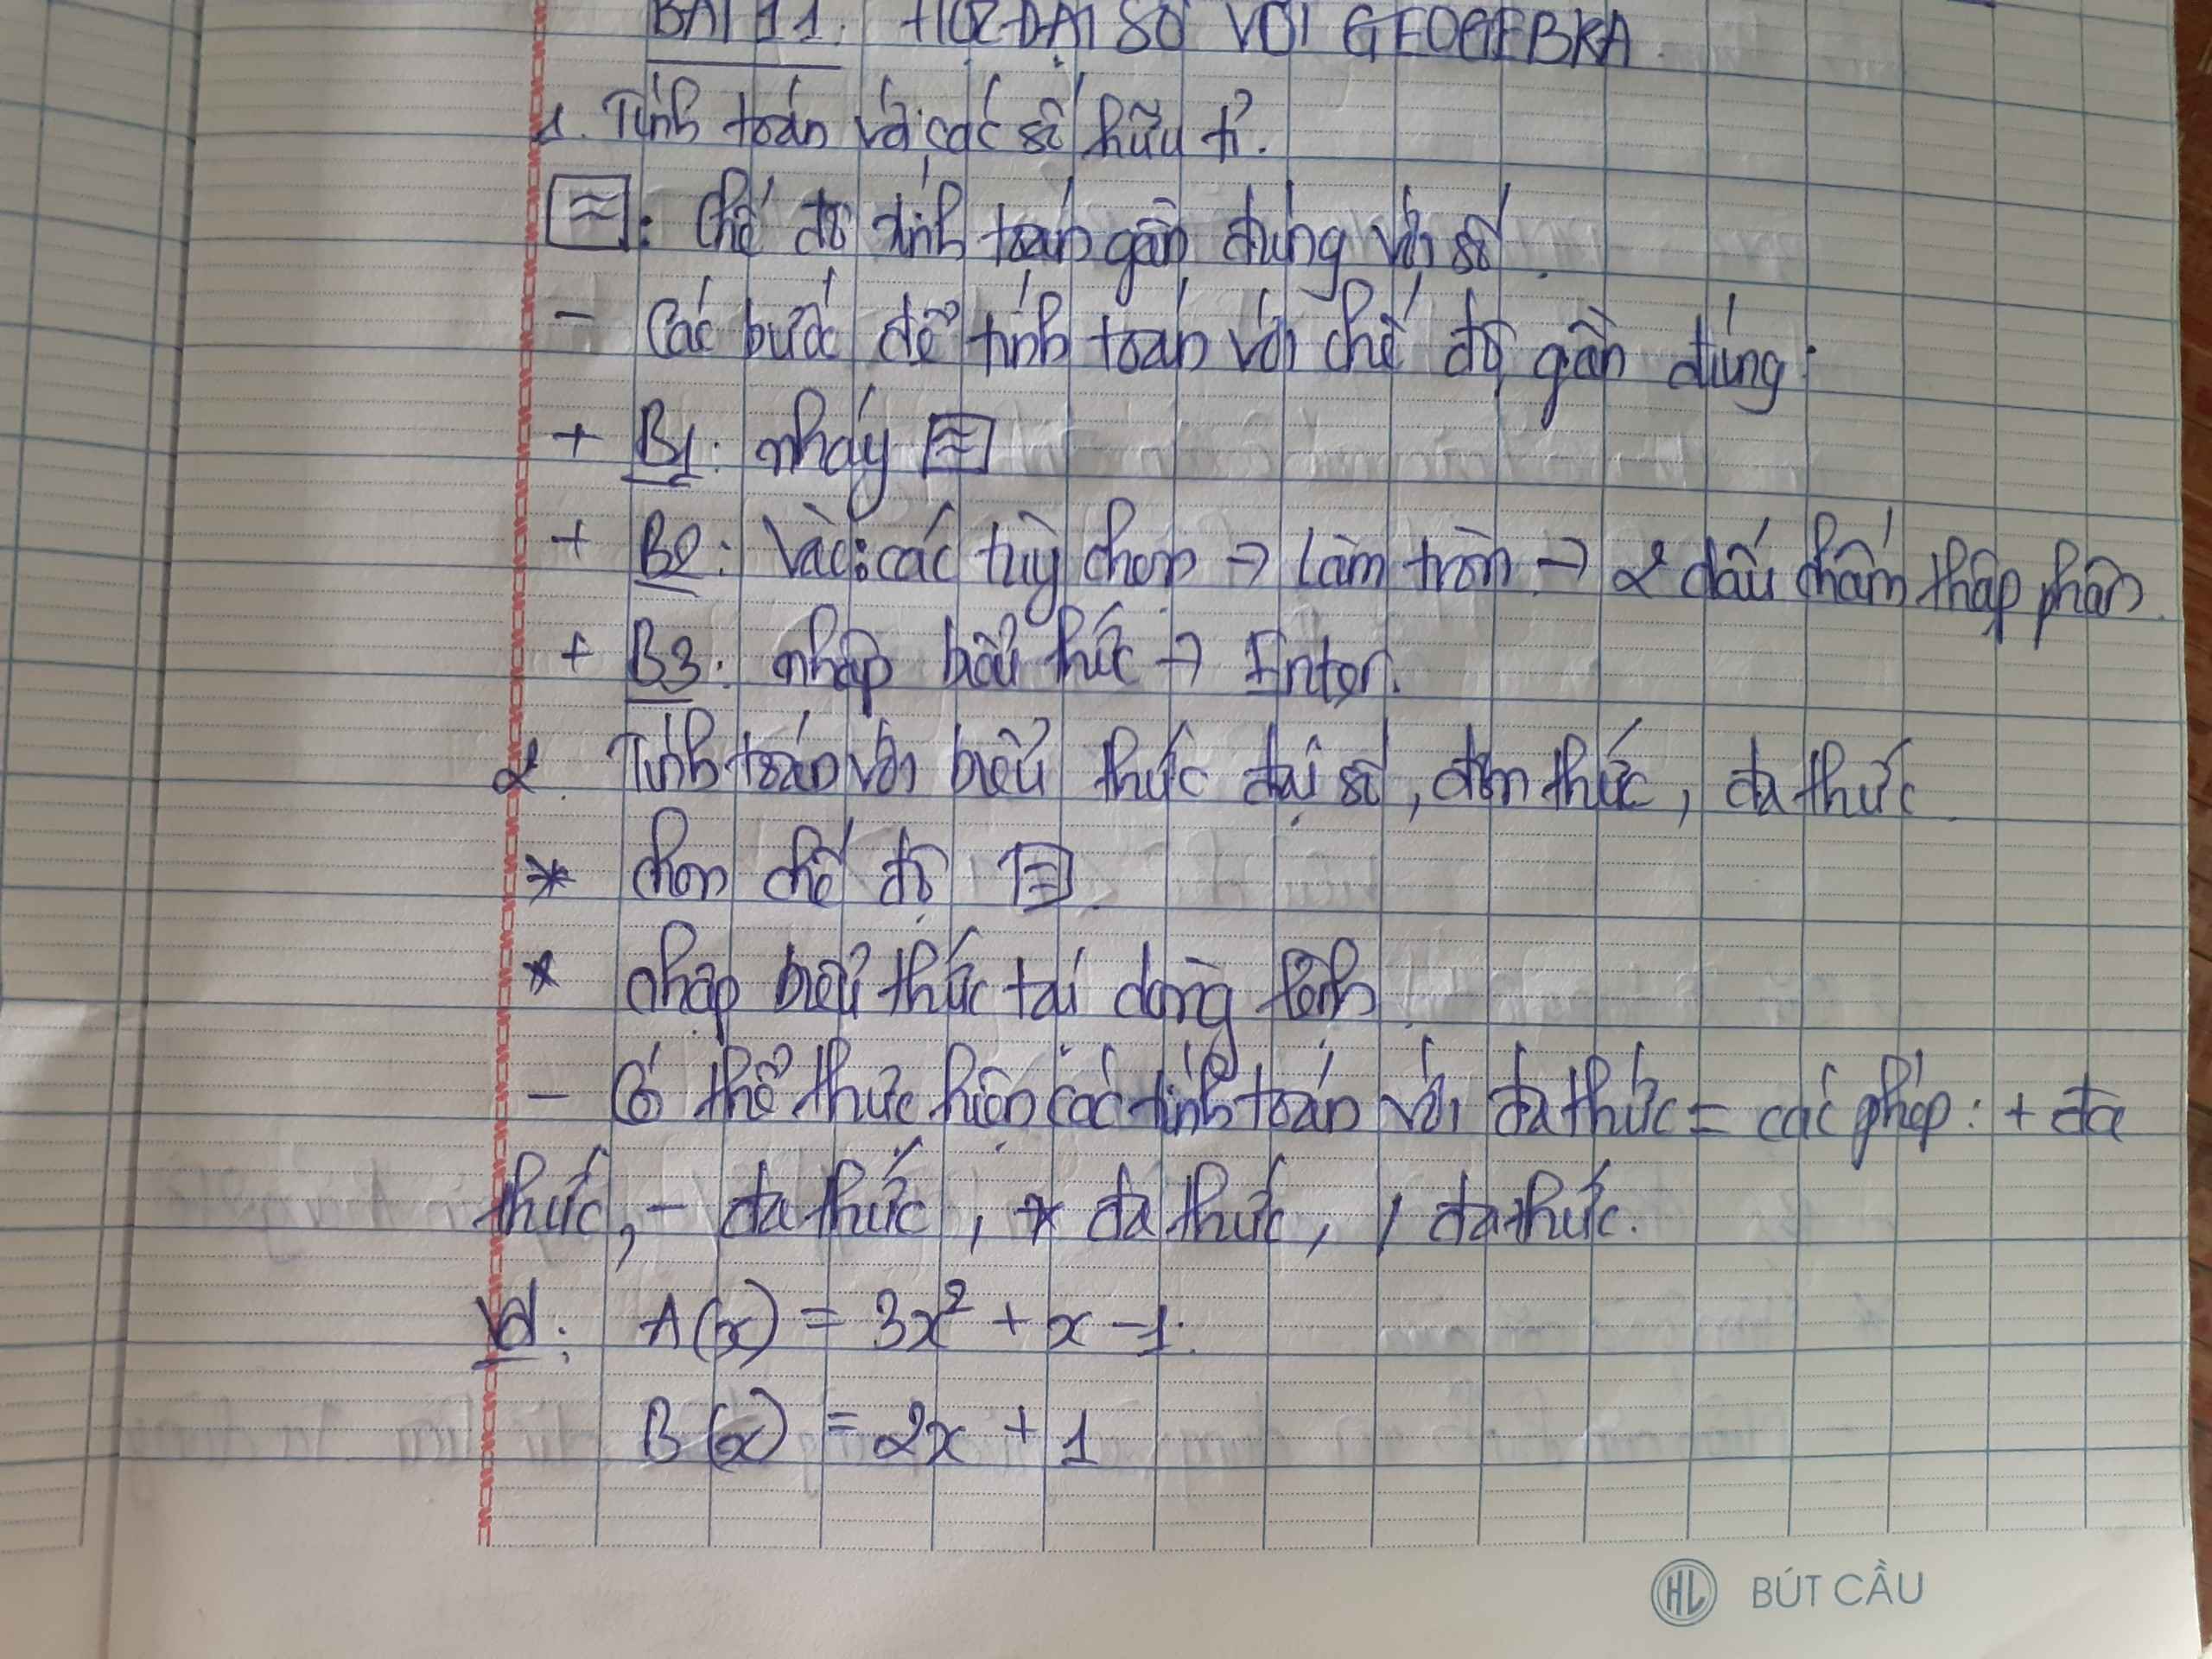 BÀI 11. HỌC ĐẠI SỐ VỚI GEOGEBRA.
1. Tính toán với các số hữu tỉ.
≈ : Chế độ tính toán gần đúng với số.
- Các bước để tính toán với chế độ gần đúng:
+ B1: nháy ≈
+ B2: Vào: các tùy chọn → Làm tròn → 2 dấu chấm thập phân.
+ B3: nhập biểu thức → Enter.
2. Tính toán với biểu thức đại số, đơn thức, đa thức.
* chọn chế độ =.
* nhập biểu thức tại dòng lệnh.
- Có thể thực hiện các tính toán với đa thức = các phép: + đa
thức, - đa thức, * đa thức, / đa thức.
Vd: A(x) = 3x² + x - 1.
B(x) = 2x + 1
HL BÚT CẦU